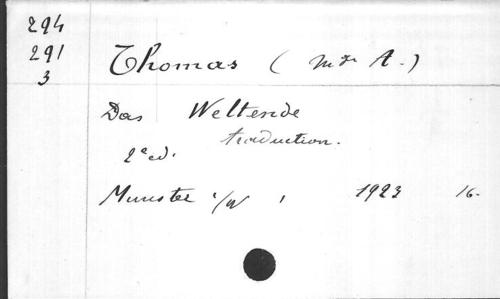 294
291
3
Thomas (Mgr A.)
Das Weltende
traduction.
2e ed.
Munster i/W, 1923 16-